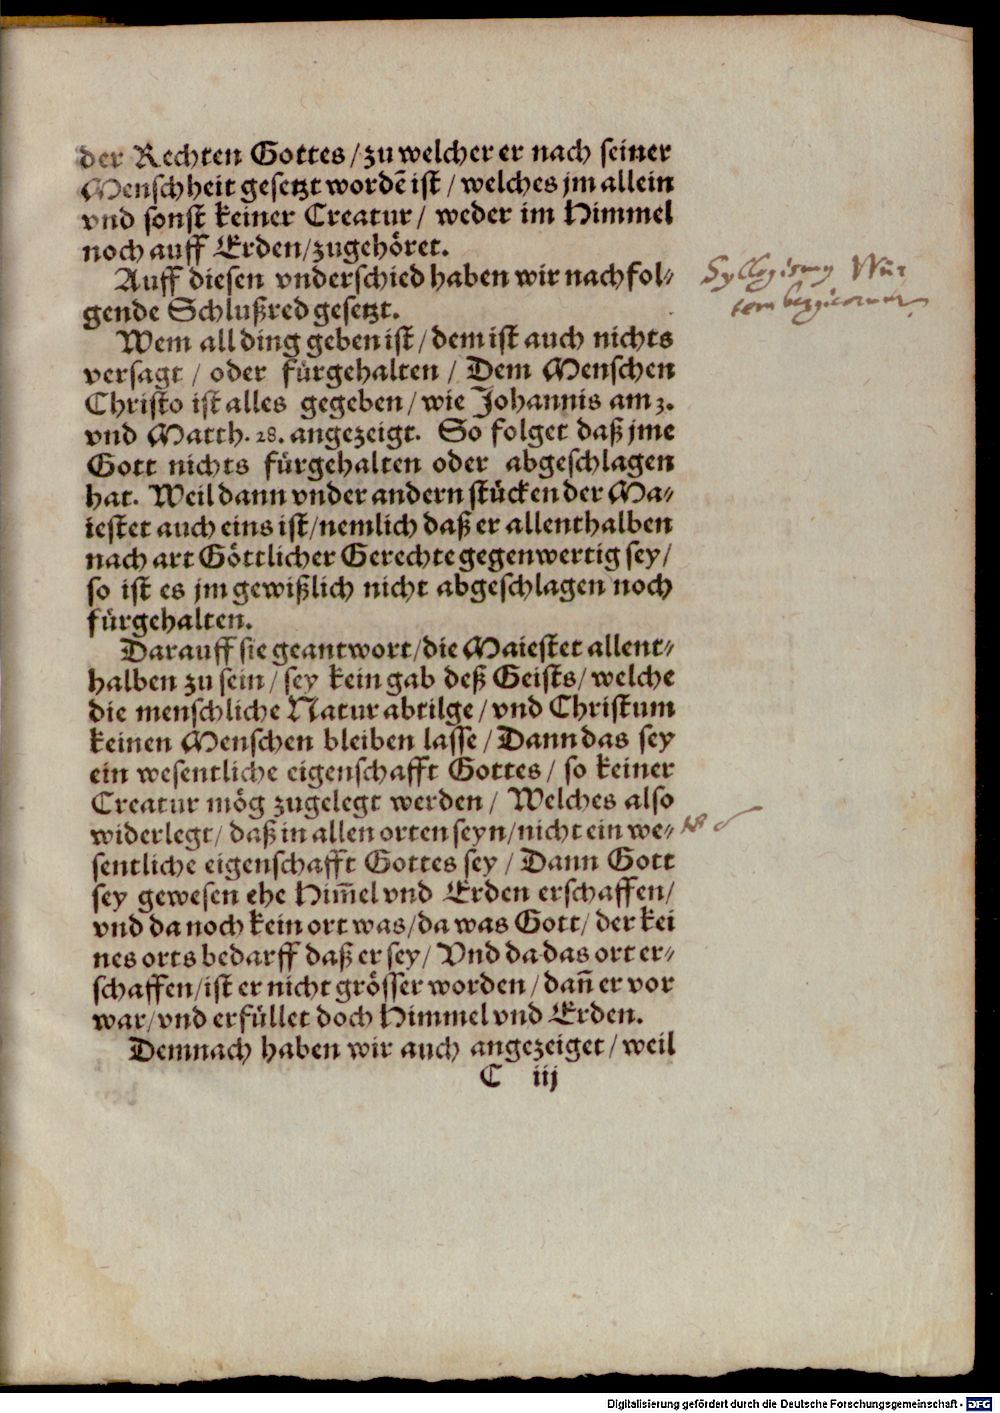 der Rechten Gottes / zu welcher er nach seiner
Menschheit gesetzt wordẽ ist / welches jm allein
vnd sonst keiner Creatur / weder im Himmel
noch auff Erden / zugehöret.
Auff diesen vnderschied haben wir nachfol-
gende Schlußred gesetzt.
Syllogismus Wür
tembergicorum
Wem all ding geben ist / dem ist auch nichts
versagt / oder fürgehalten / Dem Menschen
Christo ist alles gegeben / wie Johannis am 3.
vnd Matth. 28. angezeigt. So folget daß jme
Gott nichts fürgehalten oder abgeschlagen
hat. Weil dann vnder andern stücken der Ma-
iestet auch eins ist / nemlich daß er allenthalben
nach art Göttlicher Gerechte gegenwertig sey /
so ist es jm gewißlich nicht abgeschlagen noch
fürgehalten.
Darauff sie geantwort / die Maiestet allent-
halben zu sein / sey kein gab deß Geists / welche
die menschliche Natur abtilge / vnd Christum
keinen Menschen bleiben lasse / Dann das sey
ein wesentliche eigenschafft Gottes / so keiner
Creatur mög zugelegt werden / Welches also
widerlegt / daß in allen orten seyn / nicht ein we-
sentliche eigenschafft Gottes sey / Dann Gott
sey gewesen ehe Him̃el vnd Erden erschaffen /
vnd da noch kein ort was / da was Gott / der kei
nes orts bedarff daß er sey / Vnd da das ort er-
schaffen / ist er nicht grösser worden / dañ er vor
war / vnd erfüllet doch Himmel vnd Erden.
Demnach haben wir auch angezeiget / weil
C iij
Digitalisierung gefördert durch die Deutsche Forschungsgemeinschaft - DFG